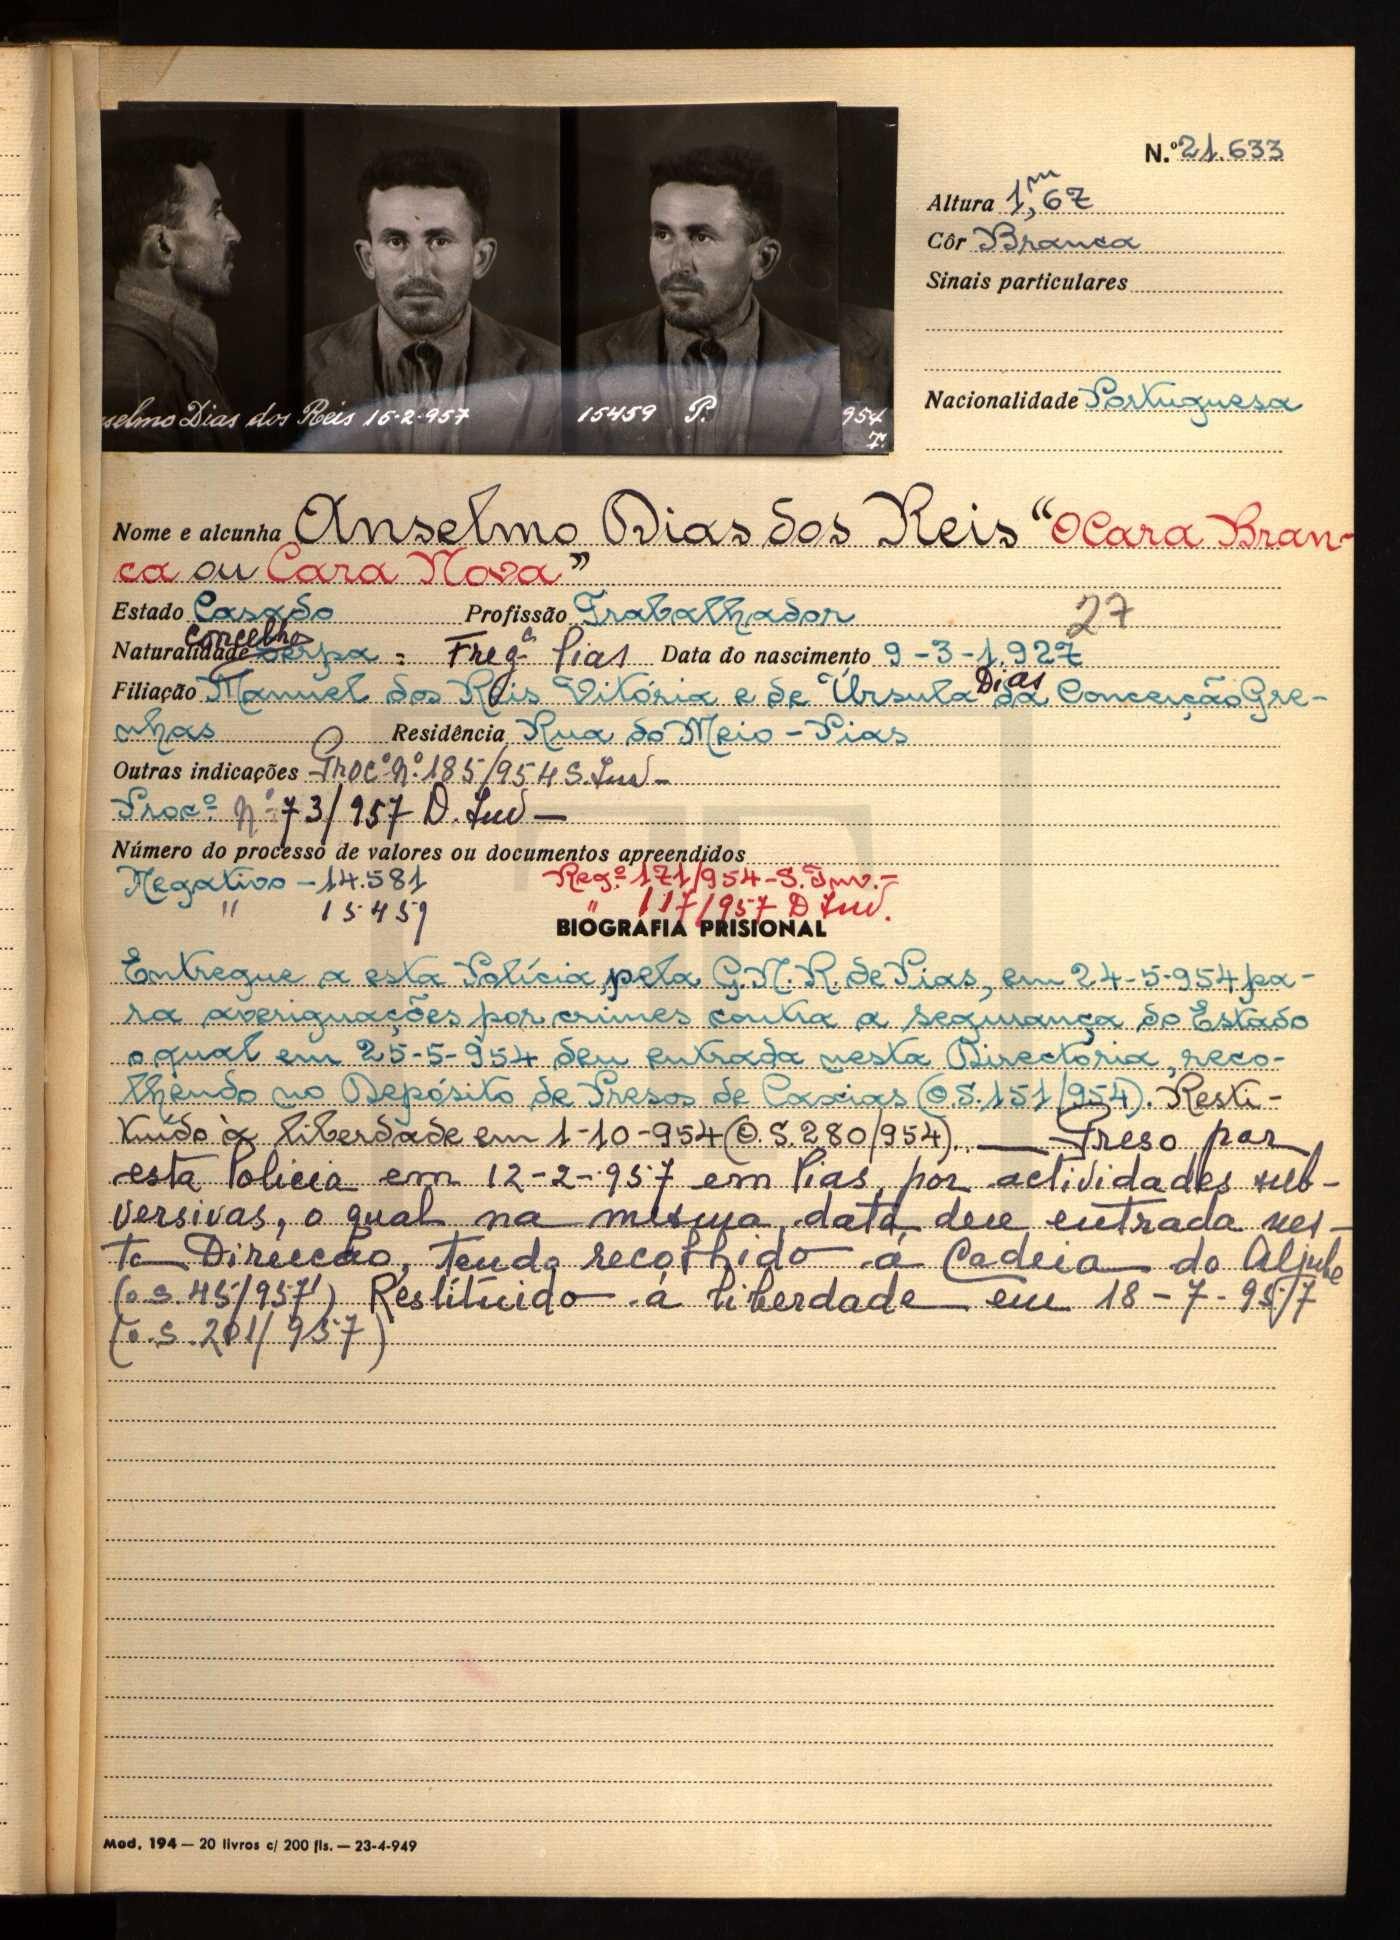 N.º 21.633
Altura 1,m67
Côr Branca
Sinais particulares
Nacionalidade Portuguesa
selmo Dias dos Reis 15-2-957 15459 P. 954
7.
Nome e alcunha Anselmo Dias dos Reis "O Cara Bran-
ca ou Cara Nova"
Estado Casado Profissão Trabalhador 27
concelho
Naturalidade Serpa = Freg.ª Pias Data do nascimento 9-3-1.927
Dias
Filiação Manuel dos Reis Vitória e de Úrsula da Conceição Gre-
nhas Residência Rua do Meio - Pias
Outras indicações Procº nº 185/954 S. Inv. -
Procº nº 73/957 D. Inv -
Número do processo de valores ou documentos apreendidos
Negativo - 14.581 Regº 171/954 - S. Inv. -
" 15459 " 117/957 D Inv.
BIOGRAFIA PRISIONAL
Entregue a esta Polícia, pela G.N.R. de Pias, em 24-5-954 pa-
ra averiguações por crimes contra a segurança do Estado
o qual em 25-5-954 deu entrada nesta Directoria, reco-
lhendo no Depósito de Presos de Caxias (O.S. 151/954). Resti-
tuído à liberdade em 1-10-954 (O.S. 280/954). — Preso por
esta Policia em 12-2-957 em Pias, por actividades sub-
versivas, o qual na mesma data deu entrada nes-
ta Direcção, tendo recolhido á Cadeia do Aljube
(o.s. 45/957) Restituido á liberdade em 18-7-957
(o.s. 201/957)
Mod. 194 — 20 livros c/ 200 fls. — 23-4-949